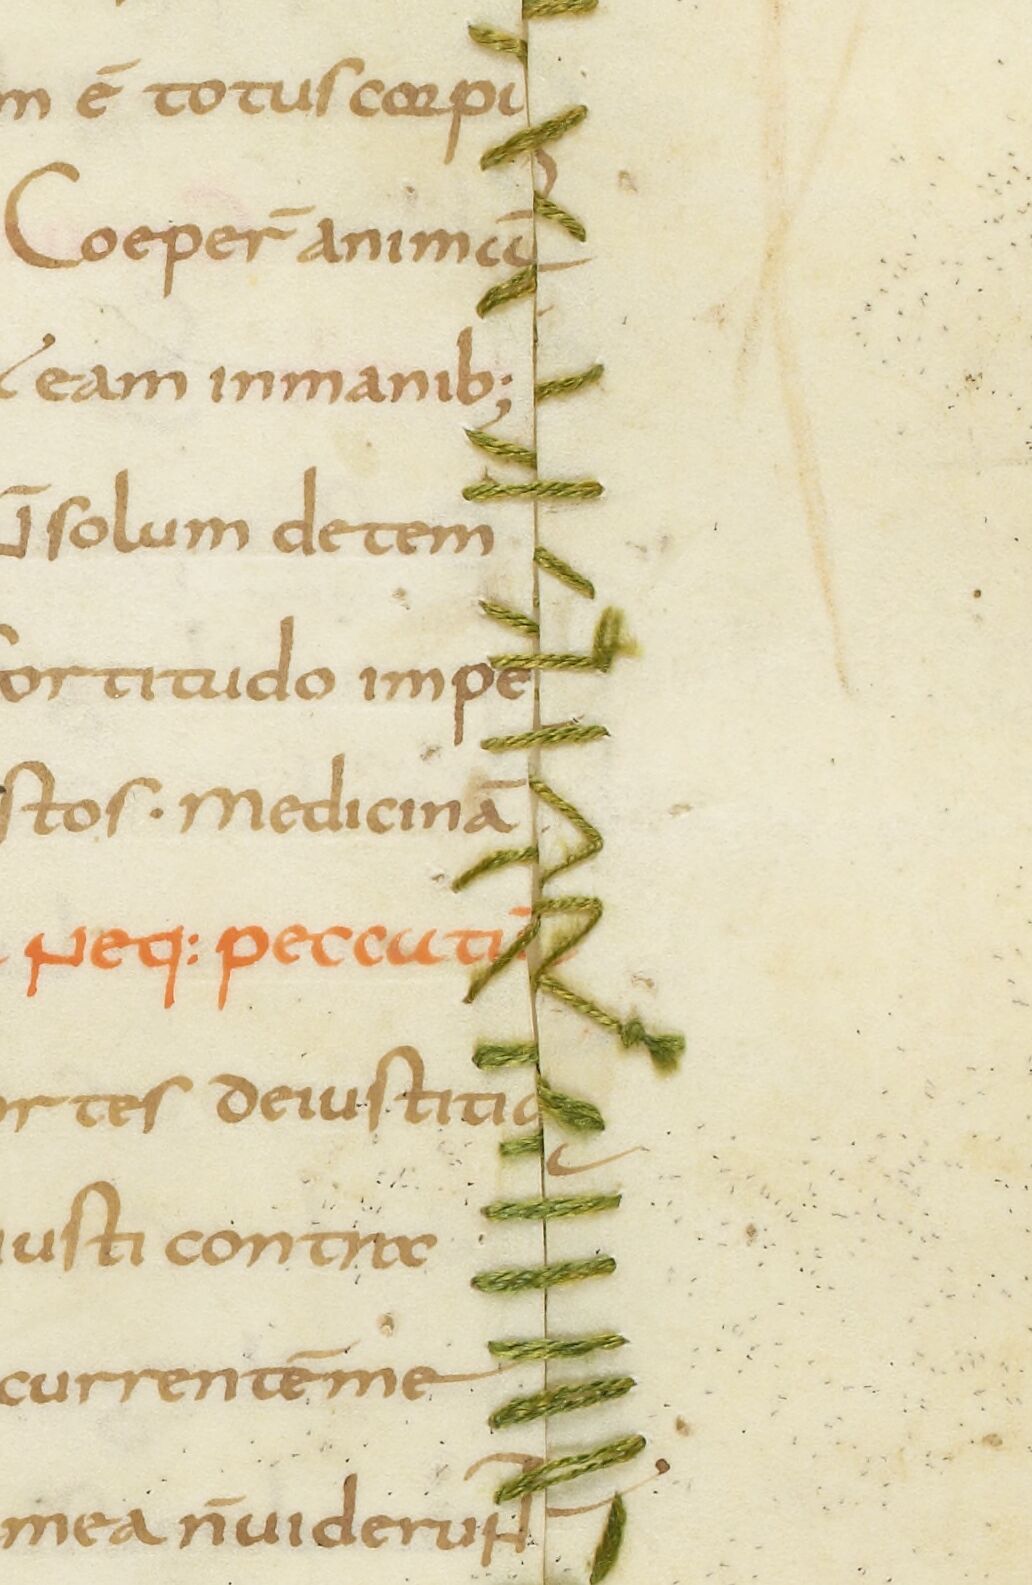 m ē totus corpi
Coeper̄ animū
eam inmanib;
solum detem
fortitudo impe
stos. Medicinā
Neq: peccuti
ortes deiustitia
iusti contra
currentē me
mea n̄ uiderun̄t